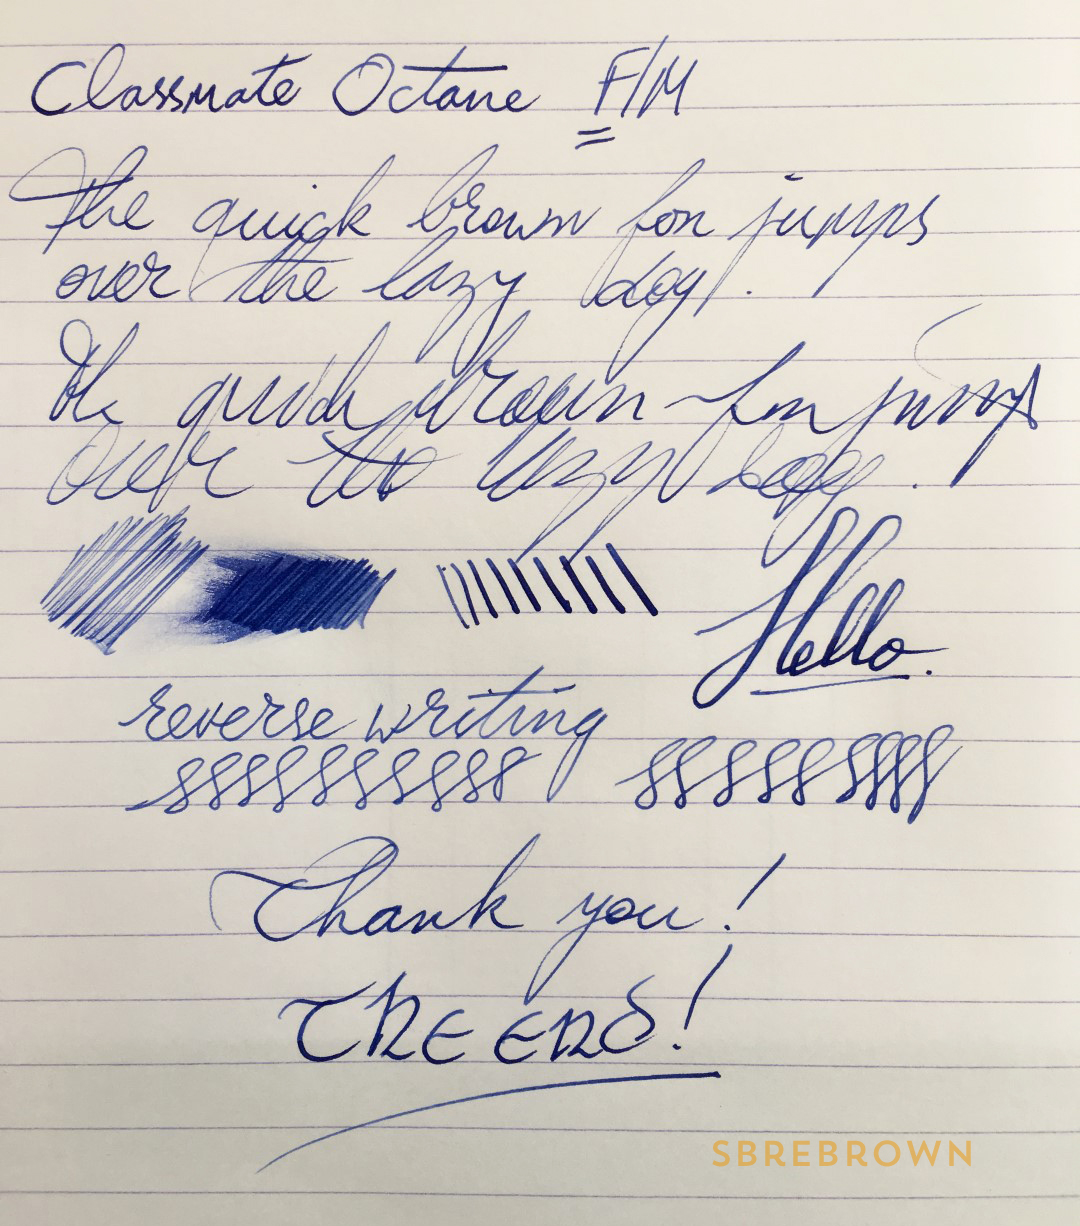 Classmate Octane F/M
The quick brown fox jumps
over the lazy dog.
The quick brown fox jumps
over the lazy dog.
Hello.
reverse writing
Thank you!
The End!
SBREBROWN